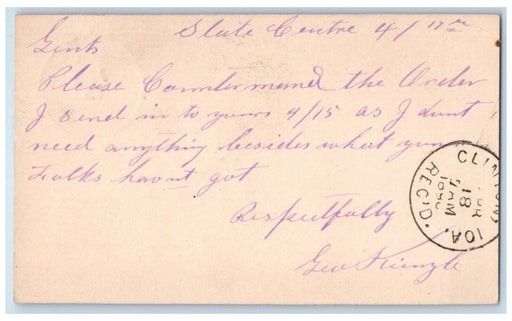 State Centre 4/17
Gents
Please Countermand the Order
I send in to yours 4/15 as I dont
need anything besides what your
Folks havnt got
Respectfully
Geo Kienzle
CLINTON, IOA.
APR
18
9 AM
REC'D.